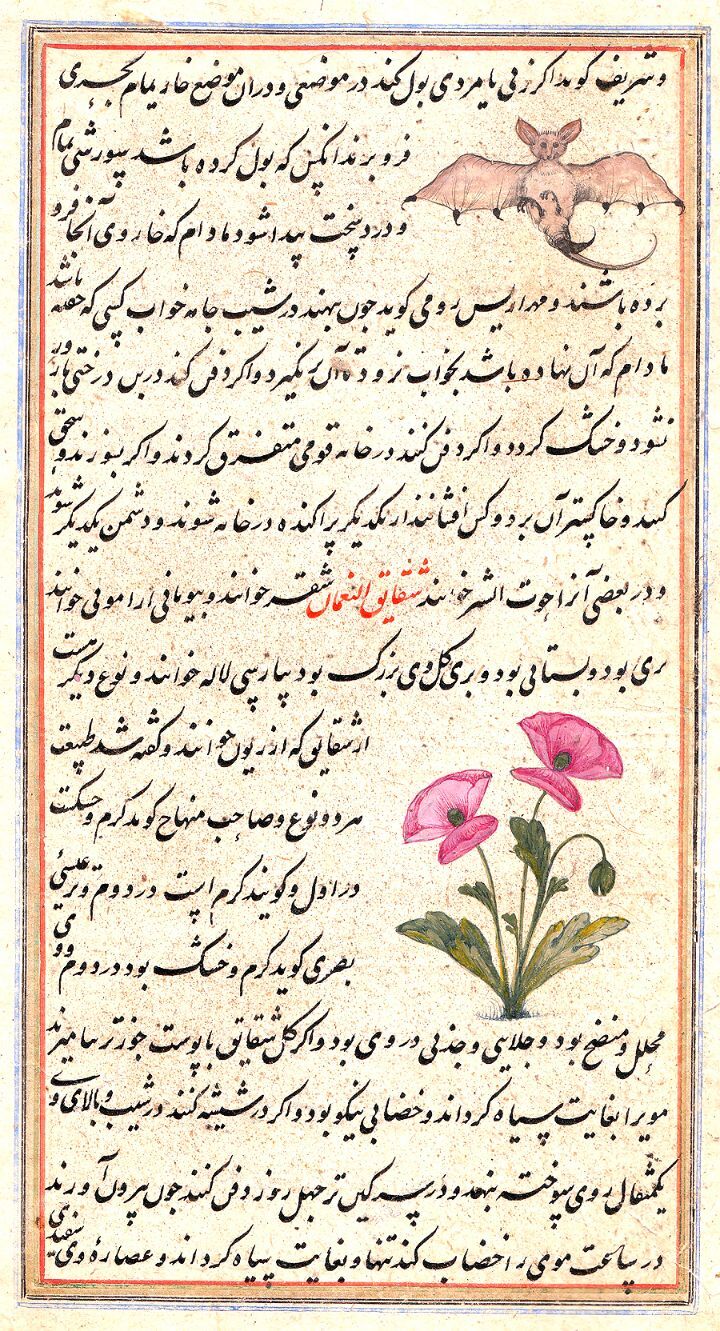 و شریف کوید اکر زنی یا مردی بول کند در موضعی و دران موضع خار یمام بحری
فرو برند انکس که بول کرده باشد سورشی تمام
و درد سخت پیدا شود مادام که خار وی آنجا فرو
برده باشند و مهراریس رومی کوید جون بنهند در شیب جامه خواب کسی که خفته باشد
مادام که آن نهاده باشد بخواب نرود تا آن برنگیرد و اکر دفن کند در بن درختی بارور
نشود و خشک کردد و اکر دفن کنند در خانه قومی متفرق کردند و اکر بسوزند و سحق
کنند و خاکستر آن بر دو کس افشانند از یکدیکر پراکنده در خانه شوند و دشمن یکدیکر شوند
و در بعضی آنرا حوت البشر خوانند شقایق النعمان شقر خوانند و بیونانی ارامونی خوانند
بری بود و بستانی بود و بری کل وی بزرک بود بپارسی لاله خوانند و نوع دیکر هست
از شقایق که ازریون خوانند و کفته شد طبیعت
هر دو نوع و صاحب منهاج کوید کرم و خشکست
در اول و کویند کرم است در دوم و تر عیسی
بصری کوید کرم و خشک بود در دوم و وی
محلل و منضج بود و جلایی و جذبی در وی بود و اکر کل شقایق با پوست جوز تر بیامیزند
مویرا بغایت سیاه کرداند و خضابی نیکو بود و اکر در شیشه کنند در شیب و بالای وی
یکمثقال روی سوخته بنهد و در سرکین تر جهل روز دفن کنند جون بیرون آورند
در ساعت موی را خضاب کند تنها و بغایت سیاه کرداند و عصارهٔ وی سفیدی